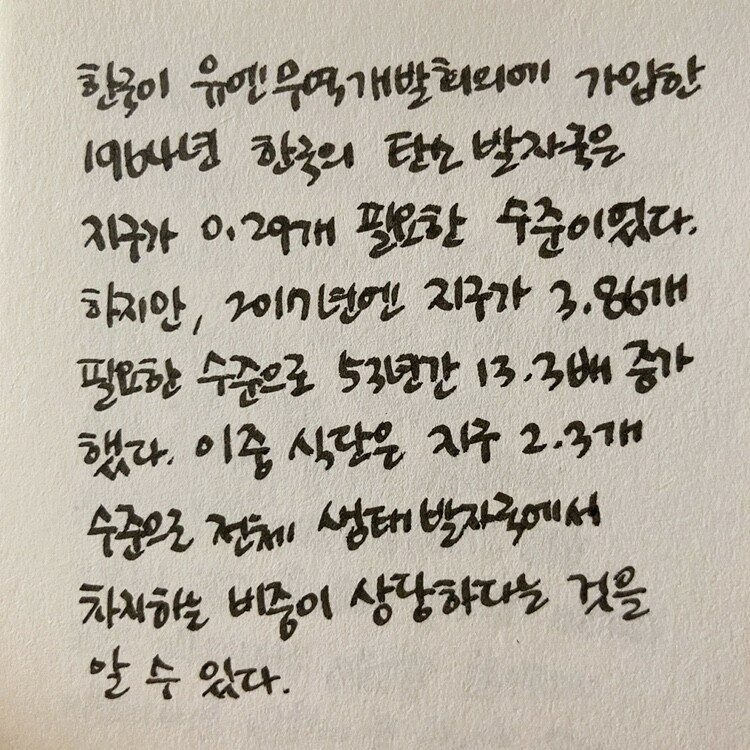 한국이 유엔무역개발회의에 가입한
1964년 한국의 탄소 발자국은
지구가 0.29개 필요한 수준이었다.
하지만, 2017년엔 지구가 3.86개
필요한 수준으로 53년간 13.3배 증가
했다. 이중 식단은 지구 2.3개
수준으로 전체 생태발자국에서
차지하는 비중이 상당하다는 것을
알 수 있다.